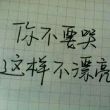 你不要哭
这样不漂亮